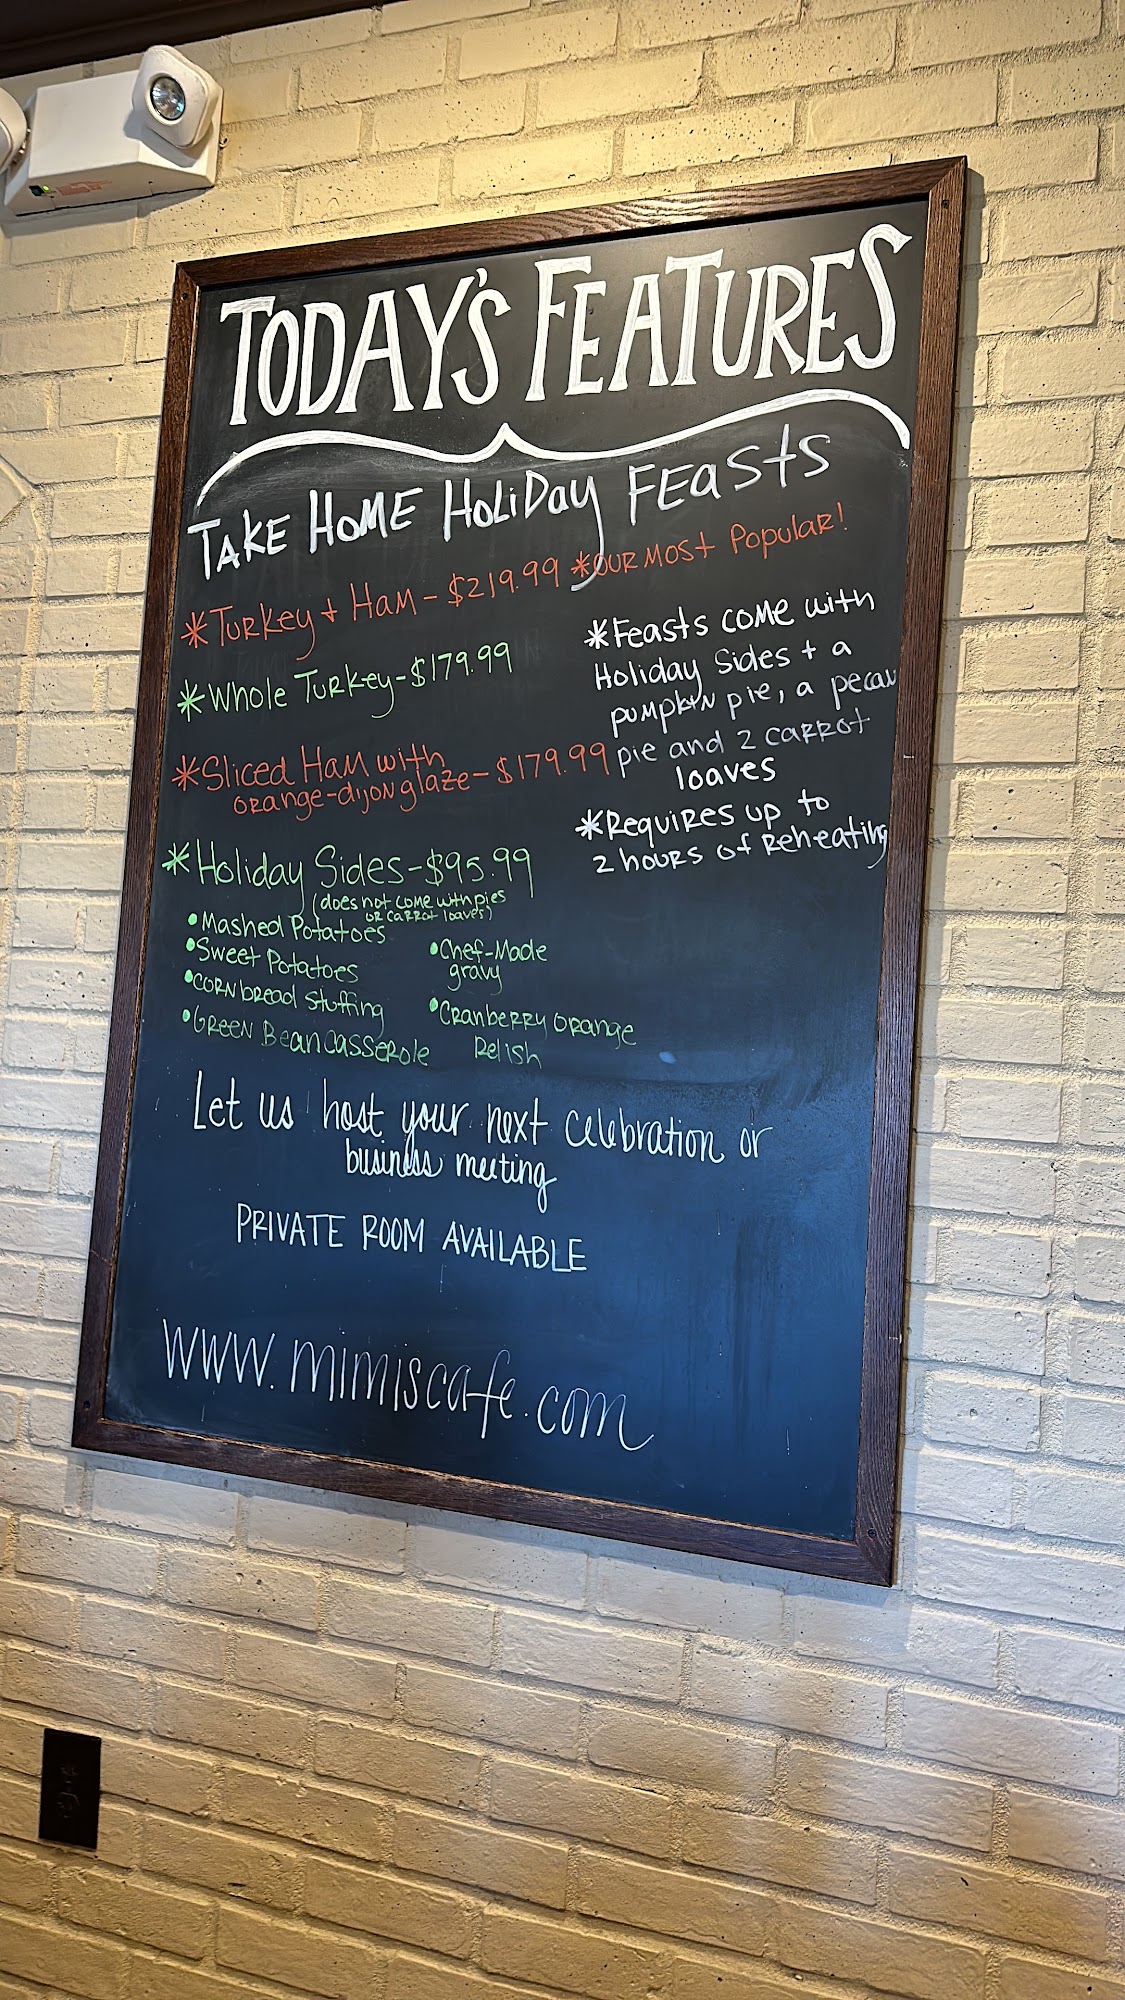 TODAY'S FEATURES
TAKE HOME HOLiDay FEasts
*Turkey + Ham - $219.99 *OUR MOST Popular!
*Whole Turkey - $179.99
*Sliced Ham with
orange-dijon glaze - $179.99
*Holiday Sides - $95.99
(does not come with pies
or carrot loaves)
•Mashed Potatoes
•Sweet Potatoes
•Cornbread Stuffing
•Green Bean Casserole
•Chef-Made
gravy
•Cranberry Orange
Relish
*Feasts come with
Holiday Sides + a
pumpkin pie, a pecan
pie and 2 carrot
loaves
*Requires up to
2 hours of Reheating
Let us host your next celebration or
business meeting
PRIVATE ROOM AVAILABLE
www.mimiscafe.com